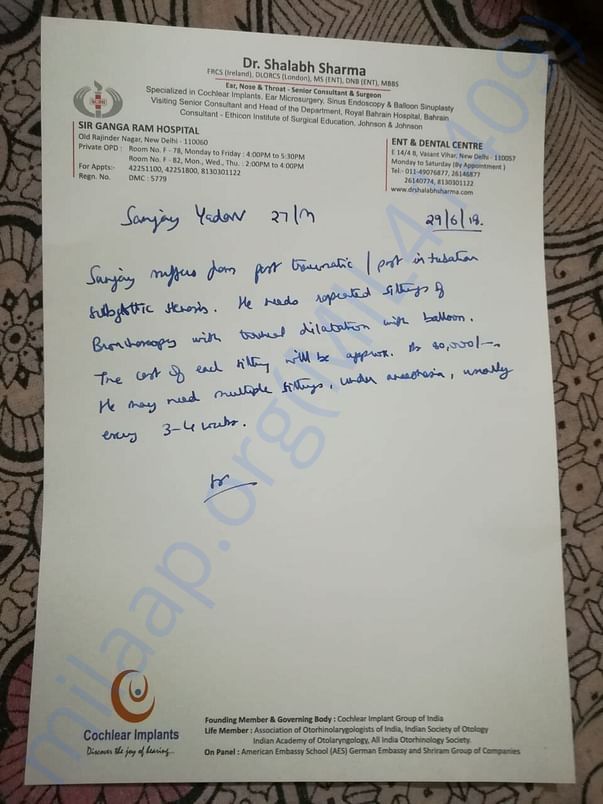 Dr. Shalabh Sharma
FRCS (Ireland), DLORCS (London), MS (ENT), DNB (ENT), MBBS
Ear, Nose & Throat - Senior Consultant & Surgeon
Specialized in Cochlear Implants, Ear Microsurgery, Sinus Endoscopy & Balloon Sinuplasty
Visiting Senior Consultant and Head of the Department, Royal Bahrain Hospital, Bahrain
Consultant - Ethicon Institute of Surgical Education, Johnson & Johnson
SIR GANGA RAM HOSPITAL
Old Rajinder Nagar, New Delhi - 110060
Private OPD : Room No. F - 78, Monday to Friday : 4:00PM to 5:30PM
Room No. F - 82, Mon., Wed., Thu. : 2:00PM to 4:00PM
For Appts:- 42251100, 42251800, 8130301122
Regn. No. DMC : 5779
ENT & DENTAL CENTRE
E 14/4 B, Vasant Vihar, New Delhi - 110057
Monday to Saturday (By Appointment)
Tel:- 011-49076877, 26146877
26140774, 8130301122
www.drshalabhsharma.com
Sanjay Yadav 27/M 29/6/18.
Sanjay suffers from post traumatic / post intubation
subglottic stenosis. He needs repeated sittings of
Bronchoscopy with tracheal dilatation with balloon.
The cost of each sitting will be approx. Rs 80,000/-
He may need multiple sittings, under anaesthesia, usually
every 3-4 weeks.
Cochlear Implants
Discover the joy of hearing...
Founding Member & Governing Body : Cochlear Implant Group of India
Life Member : Association of Otorhinolaryogologists of India, Indian Society of Otology
Indian Academy of Otolaryngology, All India Otorhinology Society.
On Panel : American Embassy School (AES) German Embassy and Shriram Group of Companies